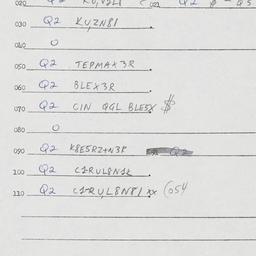 020
030 Q2 KUZN8I
040 O
050 Q2 TEPMAX3R
060 Q2 BLEX3R
070 Q2 CIN QGL BLE5X $
080 O
090 Q2 K8E5RZ+N3P
100 Q2 C1RUL8N1L
110 Q2 C1RUL8N8I XX (054